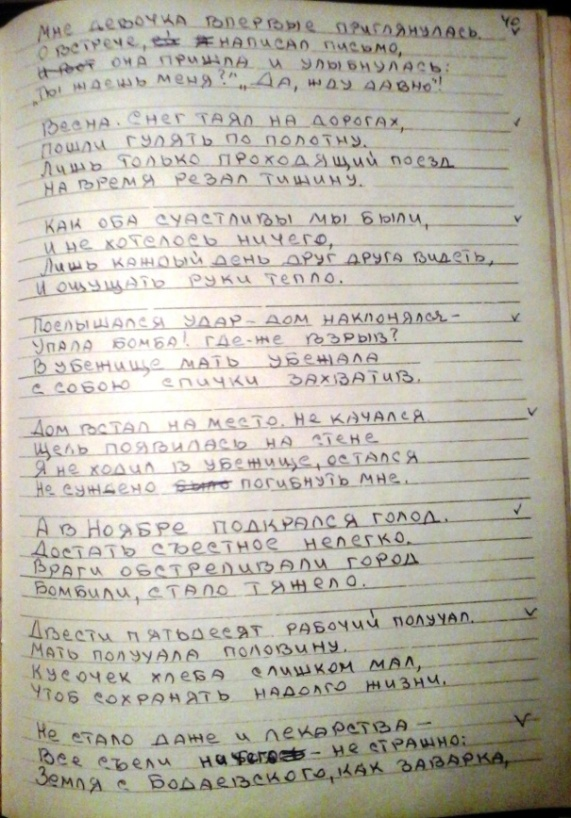 40
Мне девочка впервые приглянулась.
О встрече, написал письмо,
и вот она пришла и улыбнулась:
„Ты ждешь меня?" „Да, жду давно"!
Весна. Снег таял на дорогах,
Пошли гулять по полотну.
Лишь только проходящий поезд
на время резал тишину.
Как оба счастливы мы были,
и не хотелось ничего,
Лишь каждый день друг друга видеть,
и ощущать руки тепло.
Послышался удар – дом наклонялся –
Упала бомба! Где-же взрыв?
В убежище мать убежала
с собою спички захватив.
Дом встал на место. Не качался
Щель появилась на стене
Я не ходил в убежище, остался
Не суждено было погибнуть мне.
А в Ноябре подкрался голод.
Достать съестное нелегко.
Враги обстреливали город
Бомбили, стало тяжело.
Двести пятьдесят рабочий получал.
Мать получала половину.
Кусочек хлеба слишком мал,
Чтоб сохранять надолго жизни.
Не стало даже и лекарства –
Все съели ничего – не страшно:
Земля с Бодаевского, как заварка,